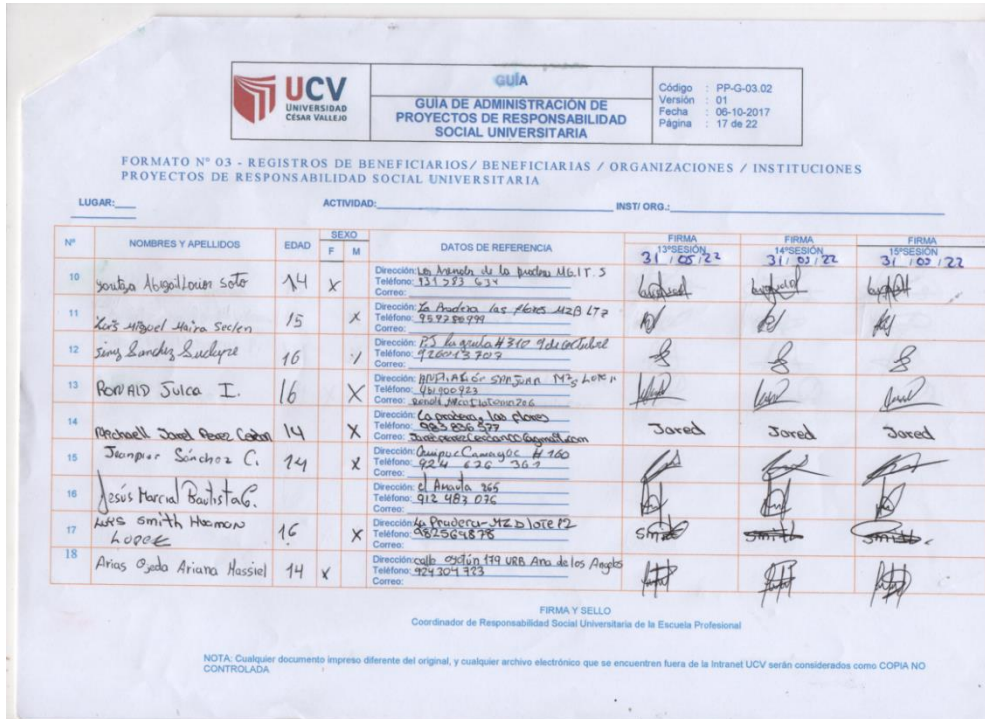 UCV
UNIVERSIDAD
CÉSAR VALLEJO
GUÍA
GUÍA DE ADMINISTRACIÓN DE
PROYECTOS DE RESPONSABILIDAD
SOCIAL UNIVERSITARIA
Código : PP-G-03.02
Versión : 01
Fecha : 06-10-2017
Página : 17 de 22
FORMATO Nº 03 - REGISTROS DE BENEFICIARIOS/ BENEFICIARIAS / ORGANIZACIONES / INSTITUCIONES
PROYECTOS DE RESPONSABILIDAD SOCIAL UNIVERSITARIA
LUGAR: ACTIVIDAD: INST/ ORG.:
Nº NOMBRES Y APELLIDOS EDAD SEXO F M DATOS DE REFERENCIA FIRMA 13ªSESIÓN 31/05/22 FIRMA 14ªSESIÓN 31/05/22 FIRMA 15ªSESIÓN 31/05/22
10 Soto 14 X Dirección: de la MG.LT. 5
Teléfono: 931 583 634
Correo:
11 Miguel Maira Seclen 15 X Dirección: La Pradera las flores MZB LT7
Teléfono: 959786999
Correo:
12 Sanchez 16 Dirección: #310 9 de octubre
Teléfono:
Correo:
13 RONALD Julca I. 16 X Dirección: SAN JUAN
Teléfono: 961900923
Correo:
14 Jared Perez 14 X Dirección: La pradera, las flores
Teléfono: 983 836 577
Correo:
Jared Jared Jared
15 Jeanpier Sánchez C. 14 X Dirección: Quipuc Camayoc # 160
Teléfono: 924 626 361
Correo:
16 Jesús Marcial Bautista C. Dirección: el Amauta 265
Teléfono: 912 483 076
Correo:
17 Luis smith 16 X Dirección: La Pradera-MZD lote 12
Teléfono: 982564878
Correo:
smith smith smith
18 Arias Ojeda Ariana Massiel 14 X Dirección: calle 179 URB Ana de los Angeles
Teléfono: 924304723
Correo:
FIRMA Y SELLO
Coordinador de Responsabilidad Social Universitaria de la Escuela Profesional
NOTA: Cualquier documento impreso diferente del original, y cualquier archivo electrónico que se encuentren fuera de la Intranet UCV serán considerados como COPIA NO
CONTROLADA